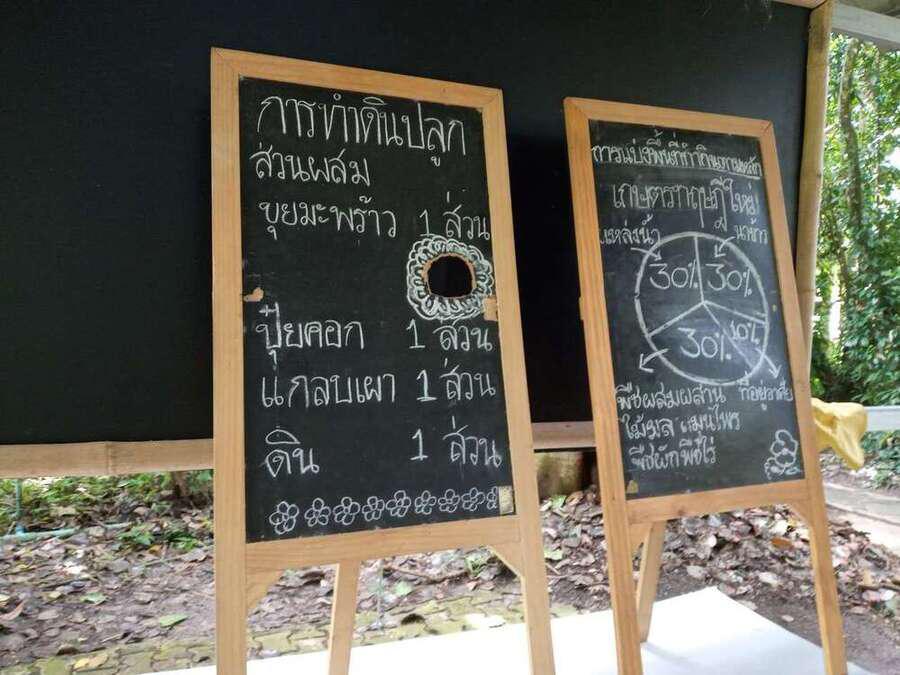 การทำดินปลูก
ส่วนผสม
ขุยมะพร้าว 1 ส่วน
ปุ๋ยคอก 1 ส่วน
แกลบเผา 1 ส่วน
ดิน 1 ส่วน
การแบ่งพื้นที่ทำกินตามหลัก
เกษตรทฤษฎีใหม่
แหล่งน้ำ นาข้าว
30% 30%
30% 10%
พืชผสมผสาน ที่อยู่อาศัย
ไม้ผล
พืชผักพืชไร่